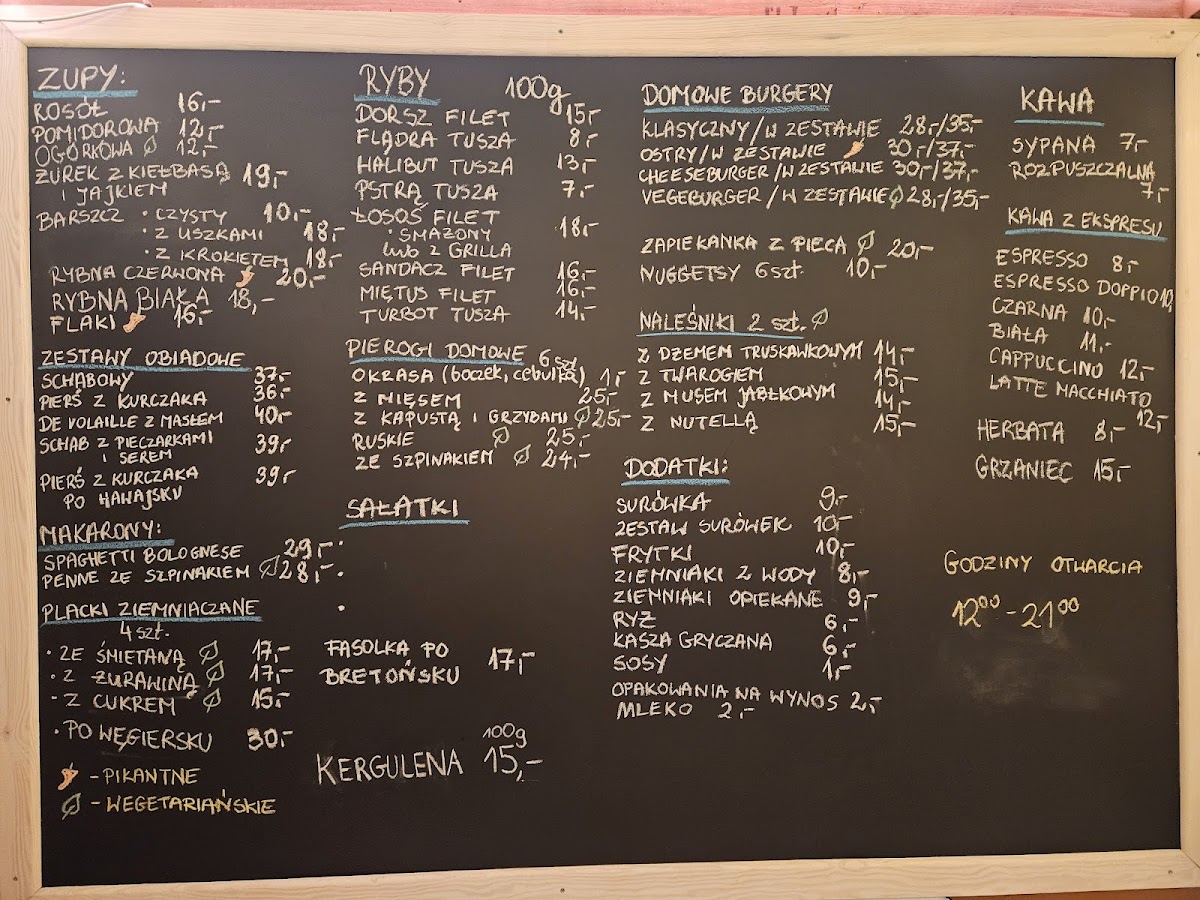 ZUPY:
ROSÓŁ 16,-
POMIDOROWA 12,-
OGÓRKOWA 12,-
ŻUREK Z KIEŁBASĄ 19,-
I JAJKIEM
BARSZCZ • CZYSTY 10,-
• Z USZKAMI 18,-
• Z KROKIETEM 18,-
RYBNA CZERWONA 20,-
RYBNA BIAŁA 18,-
FLAKI 16,-
ZESTAWY OBIADOWE
SCHABOWY 37,-
PIERŚ Z KURCZAKA 36,-
DE VOLAILLE Z MASŁEM 40,-
SCHAB Z PIECZARKAMI 39,-
I SEREM
PIERŚ Z KURCZAKA 39,-
PO HAWAJSKU
MAKARONY:
SPAGHETTI BOLOGNESE 29,-
PENNE ZE SZPINAKIEM 28,-
PLACKI ZIEMNIACZANE
4 szt.
• ZE ŚMIETANĄ 17,-
• Z ŻURAWINĄ 17,-
- Z CUKREM 15,-
• PO WĘGIERSKU 30,-
- PIKANTNE
- WEGETARIAŃSKIE
RYBY 100g
DORSZ FILET 15,-
FLĄDRA TUSZA 8,-
HALIBUT TUSZA 13,-
PSTRĄ TUSZA 7,-
ŁOSOŚ FILET
• SMAŻONY 18,-
lub Z GRILLA
SANDACZ FILET 16,-
MIĘTUS FILET 16,-
TURBOT TUSZA 14,-
PIEROGI DOMOWE 6 szt.
OKRASA (boczek, cebulka) 1,-
Z MIĘSEM 25,-
Z KAPUSTĄ I GRZYBAMI 25,-
RUSKIE 25,-
ZE SZPINAKIEM 24,-
SAŁATKI
FASOLKA PO
BRETOŃSKU 17,-
100g
KERGULENA 15,-
DOMOWE BURGERY
KLASYCZNY/W ZESTAWIE 28,-/35,-
OSTRY/W ZESTAWIE 30,-/37,-
CHEESEBURGER/W ZESTAWIE 30,-/37,-
VEGEBURGER/W ZESTAWIE 28,-/35,-
ZAPIEKANKA Z PIECA 20,-
NUGGETSY 6 szt. 10,-
NALEŚNIKI 2 szt.
Z DŻEMEM TRUSKAWKOWYM 14,-
Z TWAROGIEM 15,-
Z MUSEM JABŁKOWYM 14,-
Z NUTELLĄ 15,-
DODATKI:
SURÓWKA 9,-
ZESTAW SURÓWEK 10,-
FRYTKI 10,-
ZIEMNIAKI Z WODY 8,-
ZIEMNIAKI OPIEKANE 9,-
RYŻ 6,-
KASZA GRYCZANA 6,-
SOSY 1,-
OPAKOWANIA NA WYNOS 2,-
MLEKO 2,-
KAWA
SYPANA 7,-
ROZPUSZCZALNA
7,-
KAWA Z EKSPRESU
ESPRESSO 8,-
ESPRESSO DOPPIO 10,
CZARNA 10,-
BIAŁA 11,-
CAPPUCCINO 12,-
LATTE MACCHIATO
12,-
HERBATA 8,-
GRZANIEC 15,-
GODZINY OTWARCIA
12⁰⁰ - 21⁰⁰